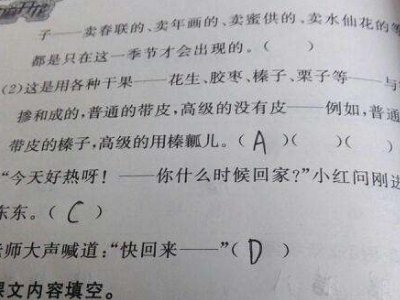 子——卖春联的、卖年画的、卖蜜供的、卖水仙花的等
都是只在这一季节才会出现的。( )
(2)这是用各种干果——花生、胶枣、榛子、栗子等——与
掺和成的,普通的带皮,高级的没有皮——例如,普通
带皮的榛子,高级的用榛瓤儿。( A )( )( )( )
“今天好热呀！——你什么时候回家?”小红问刚进
东东。( C )
师大声喊道:“快回来——”( D )
课文内容填空。